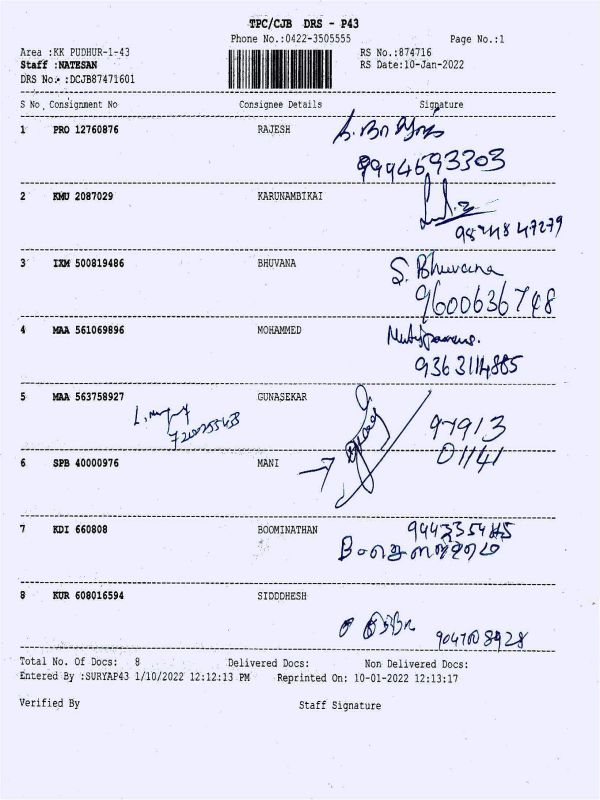 TPC/CJB DRS - P43
Phone No.:0422-3505555 Page No.:1
Area :KK PUDHUR-1-43 RS No.:874716
Staff :NATESAN RS Date:10-Jan-2022
DRS No.:DCJB87471601
S No Consignment No Consignee Details Signature
1 PRO 12760876 RAJESH
9994693303
2 KMU 2087029 KARUNAMBIKAI
3 IXM 500819486 BHUVANA S. Bhuvana
9600636748
4 MAA 561069896 MOHAMMED
9363114885
5 MAA 563758927 GUNASEKAR
97913
01141
6 SPB 40000976 MANI
7 KDI 660808 BOOMINATHAN
8 KUR 608016594 SIDDDHESH
9047008928
Total No. Of Docs: 8 Delivered Docs: Non Delivered Docs:
Entered By :SURYAP43 1/10/2022 12:12:13 PM Reprinted On: 10-01-2022 12:13:17
Verified By Staff Signature